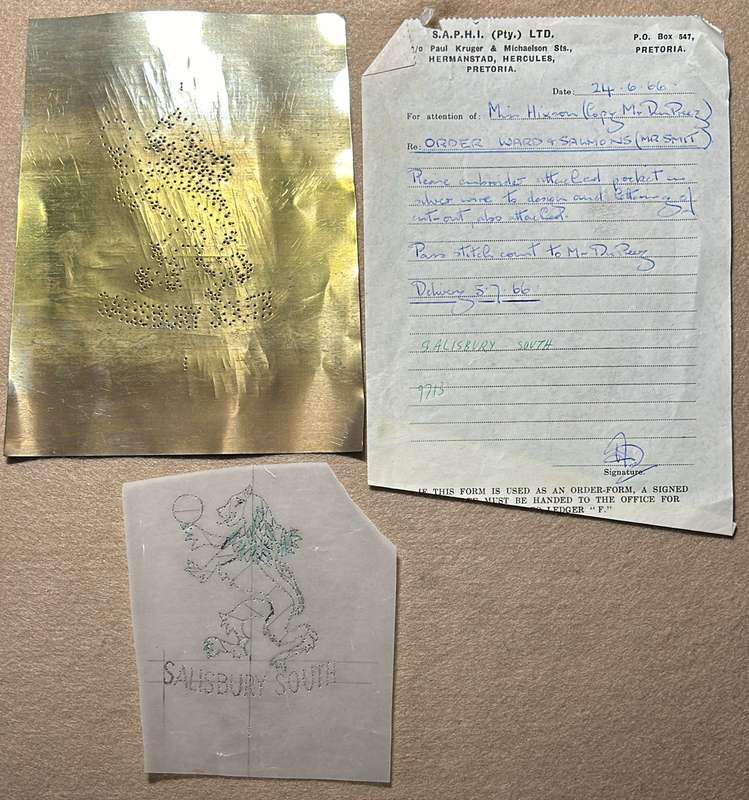 SALISBURY SOUTH
S.A.P.H.I. (Pty.) LTD.
P.O. Box 547,
PRETORIA.
Paul Kruger & Michaelson Sts.,
HERMANSTAD, HERCULES,
PRETORIA.
Date: 24.6.66.
For attention of: Miss Hixson (Copy Mr Du Preez)
Re: ORDER WARD & SALMONS (MR SMIT)
Please embroider attached pocket in
silver wire to design and lettering of
cut-out also attached.
Pass stitch count to Mr Du Preez
Delivery 5.7.66.
SALISBURY SOUTH
9713
Signature.
IF THIS FORM IS USED AS AN ORDER-FORM, A SIGNED
MUST BE HANDED TO THE OFFICE FOR
LEDGER "F."
SALISBURY SOUTH